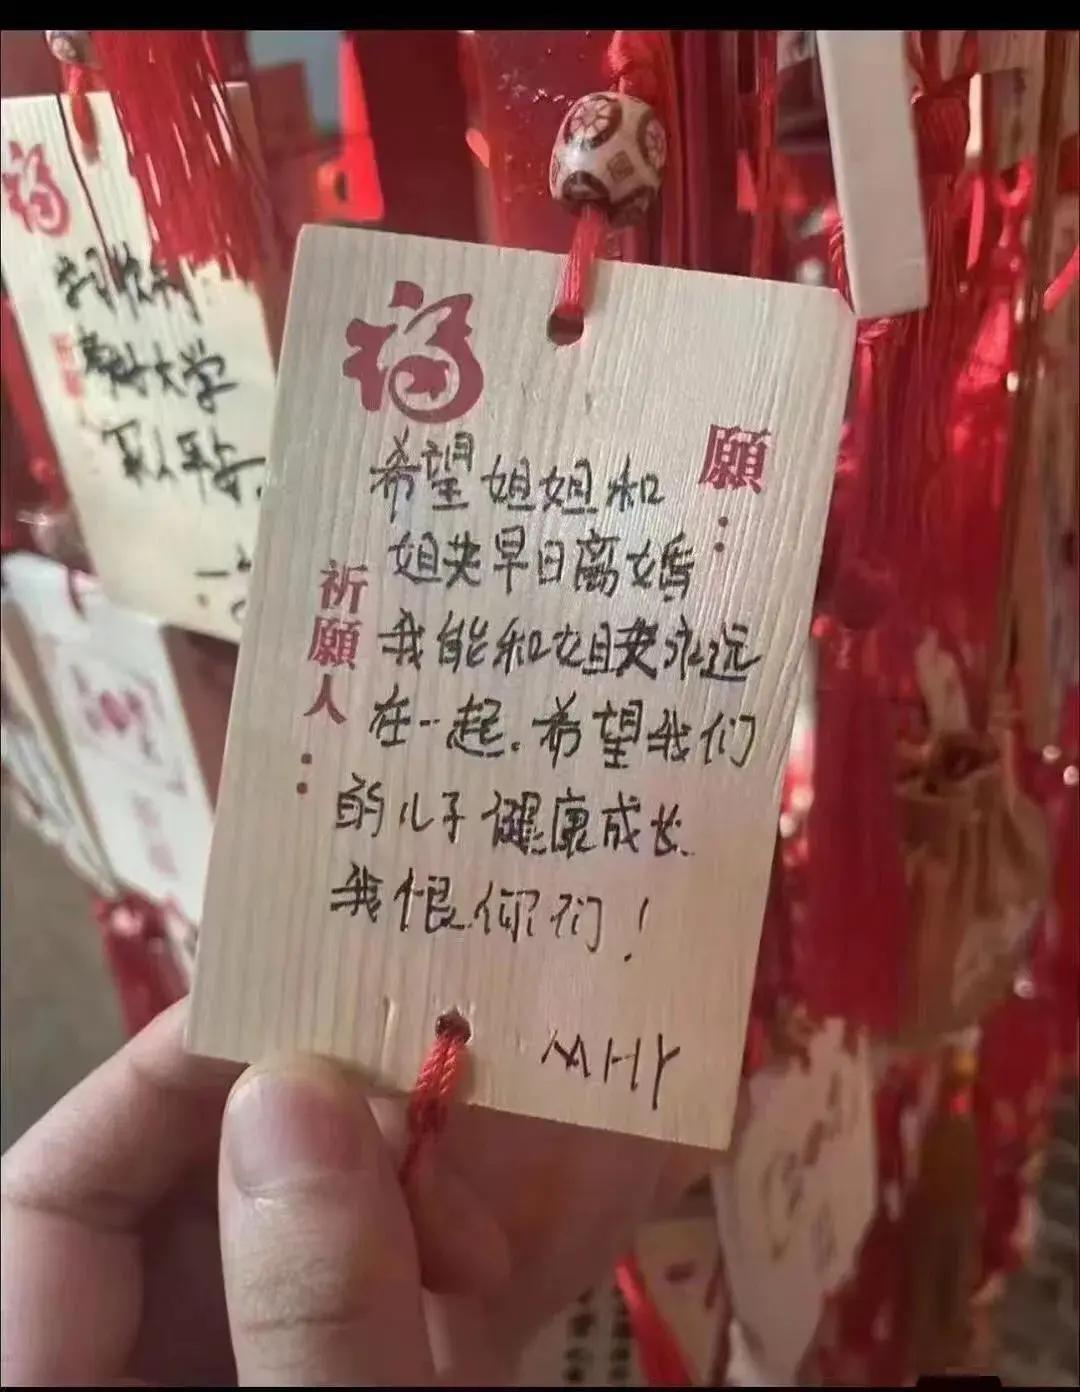 福
願：
希望姐姐和
姐夫早日离婚
我能和姐夫永远
在一起.希望我们
的儿子健康成长.
我恨你们！
祈願人：
MHY
福
大学
家人平安